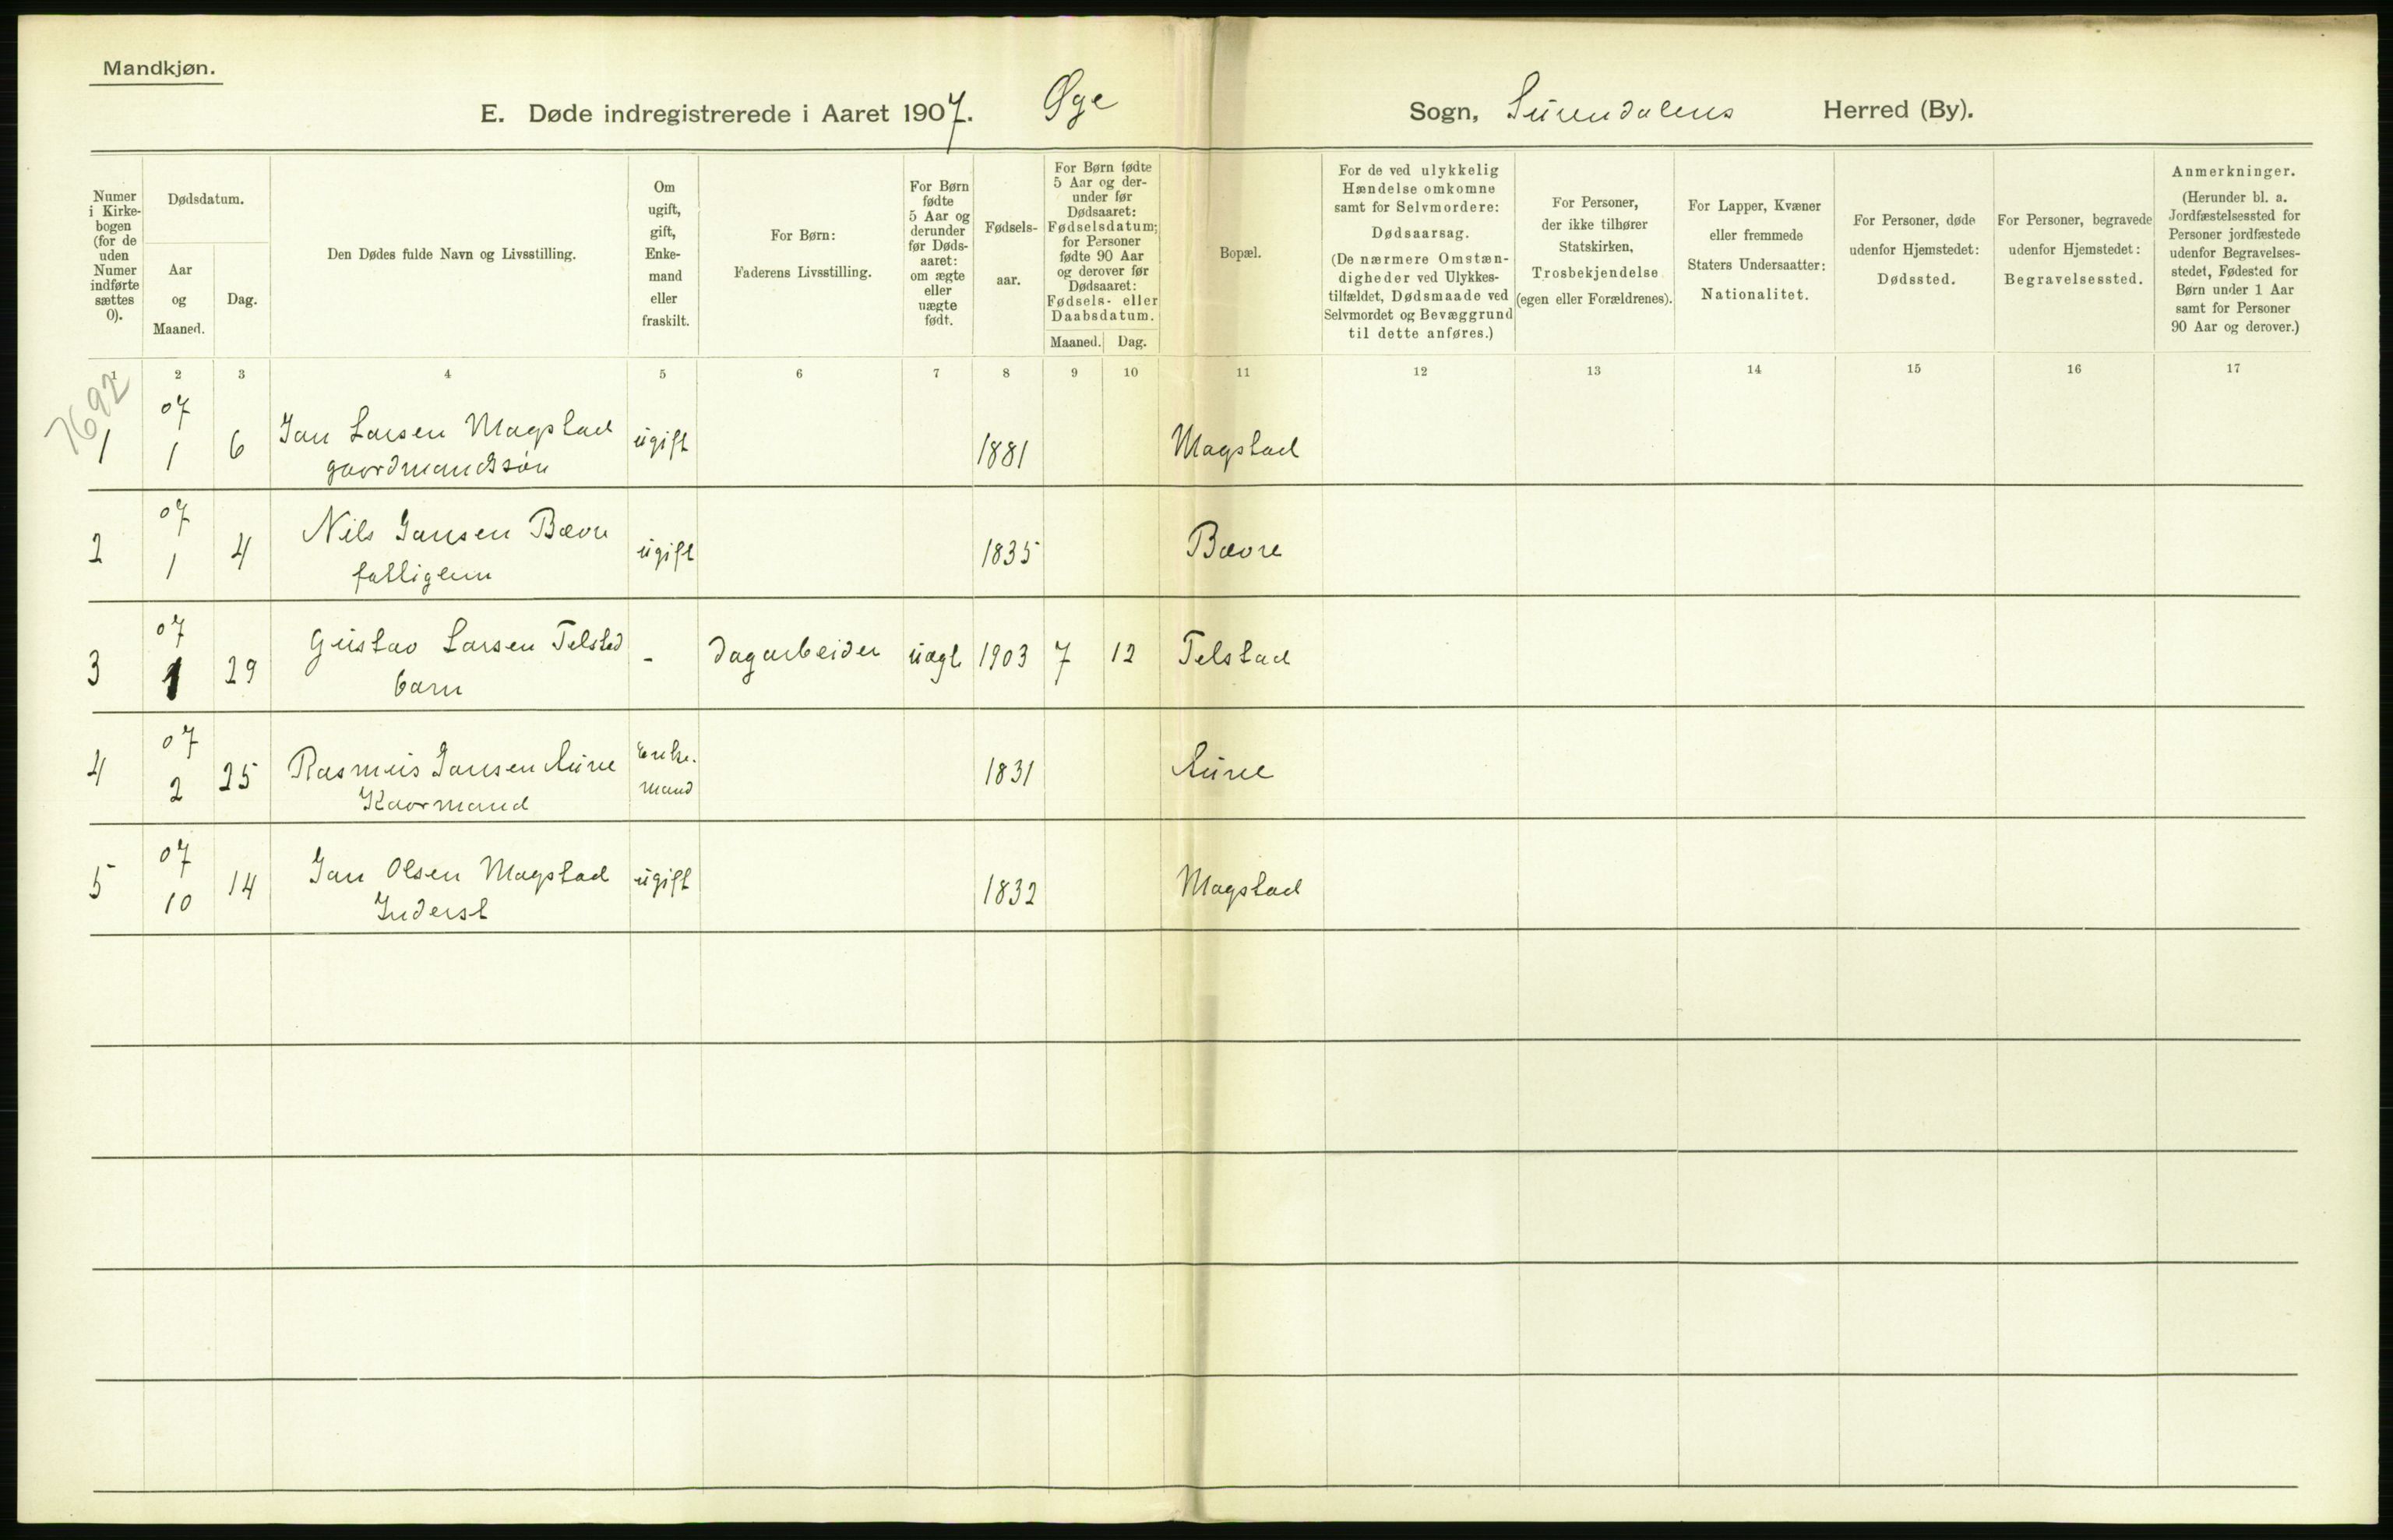 Mandkjøn.
E. Døde indregistrerede i Aaret 1907. Øye Sogn, Surendalens Herred (By).
Numer i Kirkebogen (for de uden Numer indførte sættes 0).
Dødsdatum.
Aar og Maaned.
Dag.
Den Dødes fulde Navn og Livsstilling.
Om ugift, gift, Enkemand eller fraskilt.
For Børn:
Faderens Livsstilling.
For Børn fødte 5 Aar og derunder før Dødsaaret: om ægte eller uægte født.
Fødselsaar.
For Børn fødte 5 Aar og derunder før Dødsaaret: Fødselsdatum; for Personer fødte 90 Aar og derover før Dødsaaret: Fødsels- eller Daabsdatum.
Maaned. Dag.
Bopæl.
For de ved ulykkelig Hændelse omkomne samt for Selvmordere: Dødsaarsag.
(De nærmere Omstændigheder ved Ulykkestilfældet, Dødsmaade ved Selvmordet og Bevæggrund til dette anføres.)
For Personer, der ikke tilhører Statskirken, Trosbekjendelse (egen eller Forældrenes).
For Lapper, Kvæner eller fremmede Staters Undersaatter: Nationalitet.
For Personer, døde udenfor Hjemstedet: Dødssted.
For Personer, begravede udenfor Hjemstedet: Begravelsessted.
Anmerkninger.
(Herunder bl. a. Jordfæstelsessted for Personer jordfæstede udenfor Begravelsesstedet, Fødested for Børn under 1 Aar samt for Personer 90 Aar og derover.)
1 2 3 4 5 6 7 8 9 10 11 12 13 14 15 16 17
7692
07
1 1 6 Jan Larsen Magstad ugift 1881 Magstad
gaardmandssøn
07
2 1 4 Nils Jansen Bævre ugift 1835 Bævre
fattiglem
07
3 1 29 Gustav Larsen Telstad - dagarbeider uægt 1903 7 12 Telstad
barn
07
4 2 25 Rasmus Jansen Aune Enke- 1831 Aune
Kaarmand mand
07
5 10 14 Jan Olsen Magstad ugift 1832 Magstad
Inderst